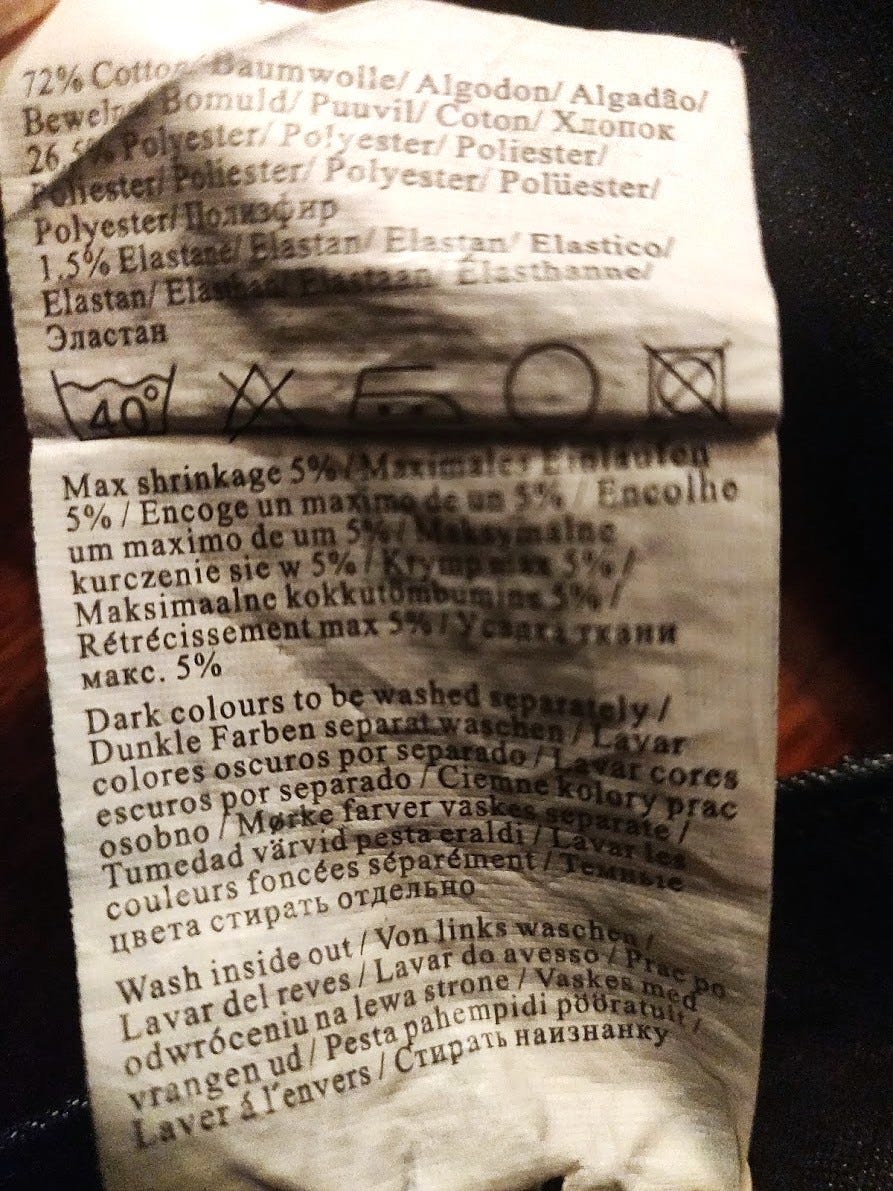 72% Cotton/ Baumwolle/ Algodon/ Algadão/
Bewelna/ Bomuld/ Puuvil/ Coton/ Хлопок
26,5% Polyester/ Polyester/ Poliester/
Poliester/ Poliester/ Polyester/ Polüester/
Polyester/ Полиэфир
1,5% Elastane/ Elastan/ Elastan/ Elastico/
Elastan/ Elasthan/ Elastaan/ Élasthanne/
Эластан
40°
Max shrinkage 5% / Maximales Einlaufen
5% / Encoge un maximo de un 5% / Encolhe
um maximo de um 5% / Maksymalne
kurczenie sie w 5% / Krymp max 5% /
Maksimaalne kokkutõmbumine 5% /
Rétrécissement max 5% / Усадка ткани
макс. 5%
Dark colours to be washed separately /
Dunkle Farben separat waschen / Lavar
colores oscuros por separado / Lavar cores
escuros por separado / Ciemne kolory prac
osobno / Mørke farver vaskes separate /
Tumedad värvid pesta eraldi / Lavar les
couleurs foncées séparément / Темные
цвета стирать отдельно
Wash inside out / Von links waschen /
Lavar del reves / Lavar do avesso / Prac po
odwróceniu na lewa strone / Vaskes med
vrangen ud / Pesta pahempidi pööratult /
Laver á l'envers / Стирать наизнанку